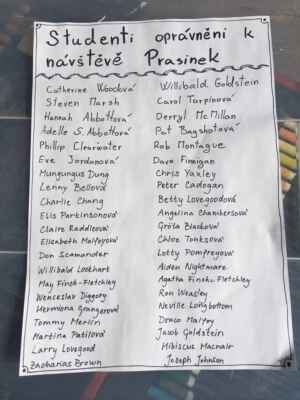 Studenti oprávnění k
návštěvě Prasinek
Catherine Woodová
Steven Marsh
Hannah Abbottová
Adelle S. Abbottová
Phillip Clearwater
Eve Jordanová
Mungungus Dung
Lenny Bellová
Charlie Chang
Elis Parkinsonová
Claire Raddleová
Elisabeth Malfoyová
Don Scamander
Willibald Lockhart
May Finch-Fletchley
Wenceslav Diggory
Hermiona Grangerová
Tommy Merlin
Martina Patilová
Larry Lovegood
Zacharias Brown
Willibald Goldstein
Carol Turpinová
Derryl McMillan
Pat Bagshotová
Rob Montague
Dave Finnigan
Chris Yaxley
Peter Cadogan
Betty Lovegoodová
Angelina Chambersová
Gréta Blacková
Chloe Tonksová
Lotty Pomfreyová
Aiden Nightmare
Agatha Finch-Fletchley
Ron Weasley
Neville Longbottom
Draco Malfoy
Jacob Goldstein
Hibiscus Macnair
Joseph Johnson